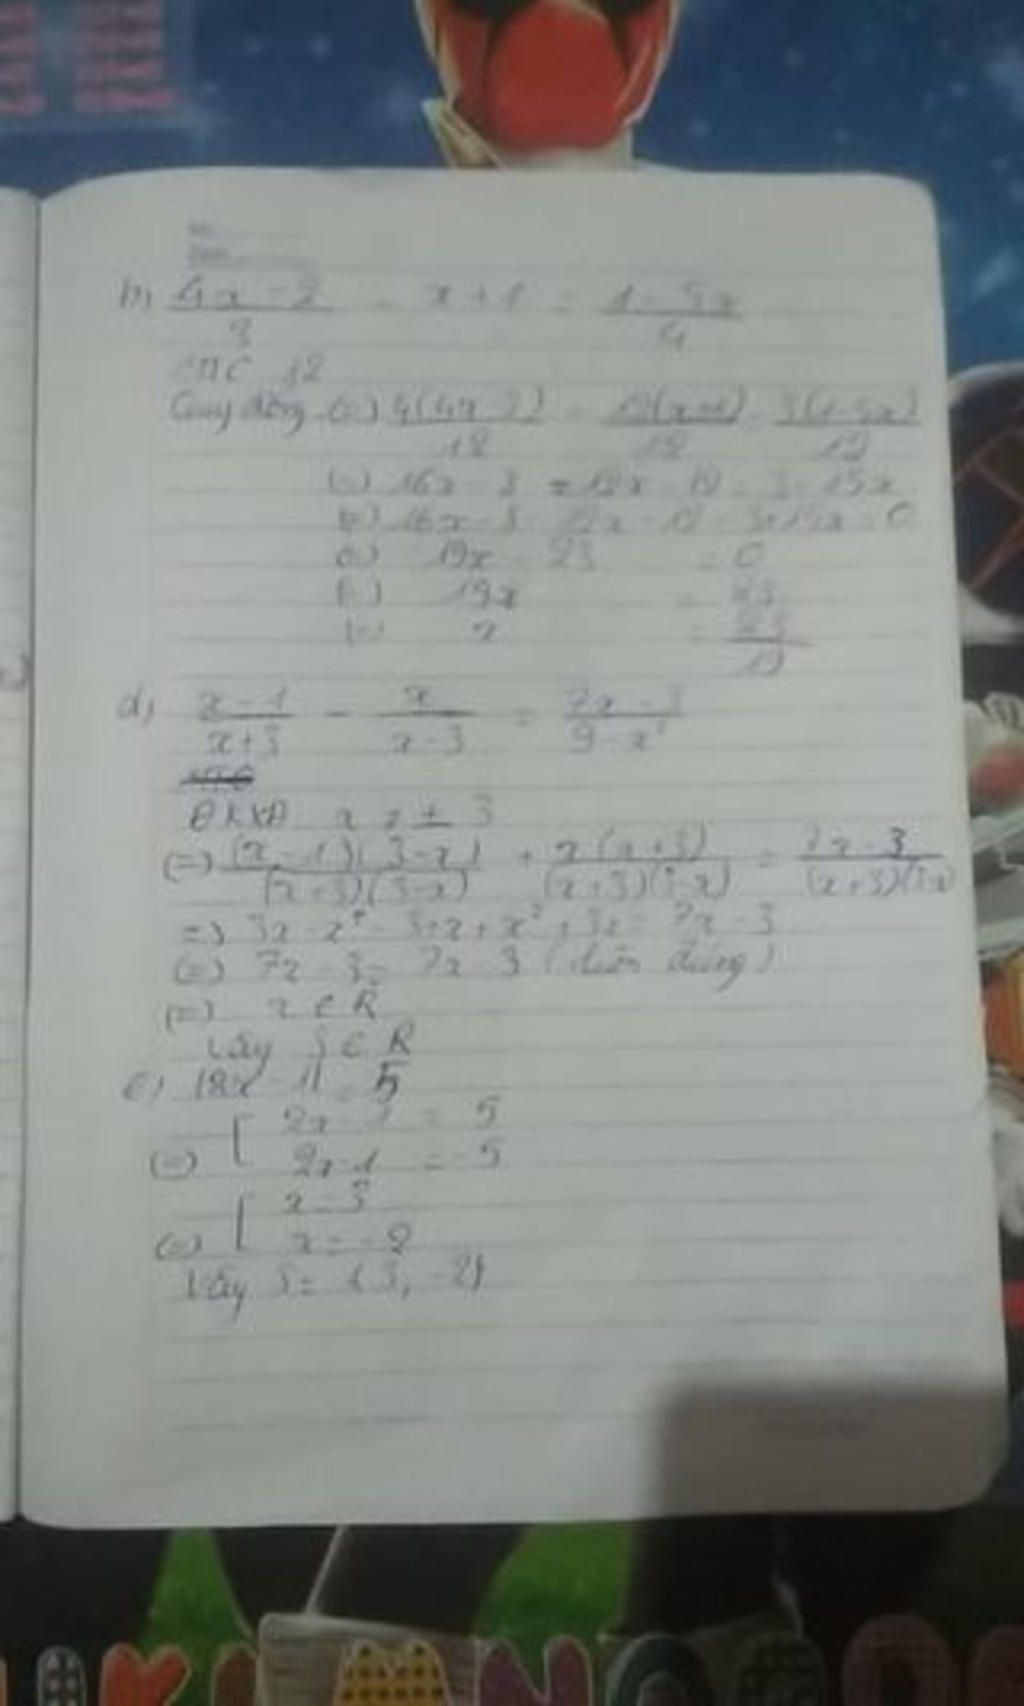 b) 4x - 2 / 3 - x + 1 = 1 - 5x / 4
MC 12
Quy đồng (=) 4(4x-2) / 12 - 12(x-1) / 12 = 3(1-5x) / 12
(=) 16x - 8 = 12x - 12 = 3 - 15x
(=) 16x - 8 - 12x - 12 - 3 + 15x = 0
(=) 19x - 23 = 0
(=) 19x = 23
(=) x = 23 / 19
d) x - 1 / x + 3 - x / x - 3 = 7x - 3 / 9 - x²
ĐKXĐ x ≠ ± 3
(=) (x - 1)(3 - x) / (x + 3)(3 - x) + x(x + 3) / (x + 3)(3 - x) = 7x - 3 / (x + 3)(3 - x)
=) 3x - x² - 3 + x + x² + 3x = 7x - 3
(=) 7x - 3 = 7x - 3 (luôn đúng)
(=) x ∈ R
Vậy S ∈ R
e) |2x - 1| = 5
(=) [ 2x - 1 = 5
2x - 1 = -5
(=) [ x = 3
x = -2
Vậy S = {3, -2}